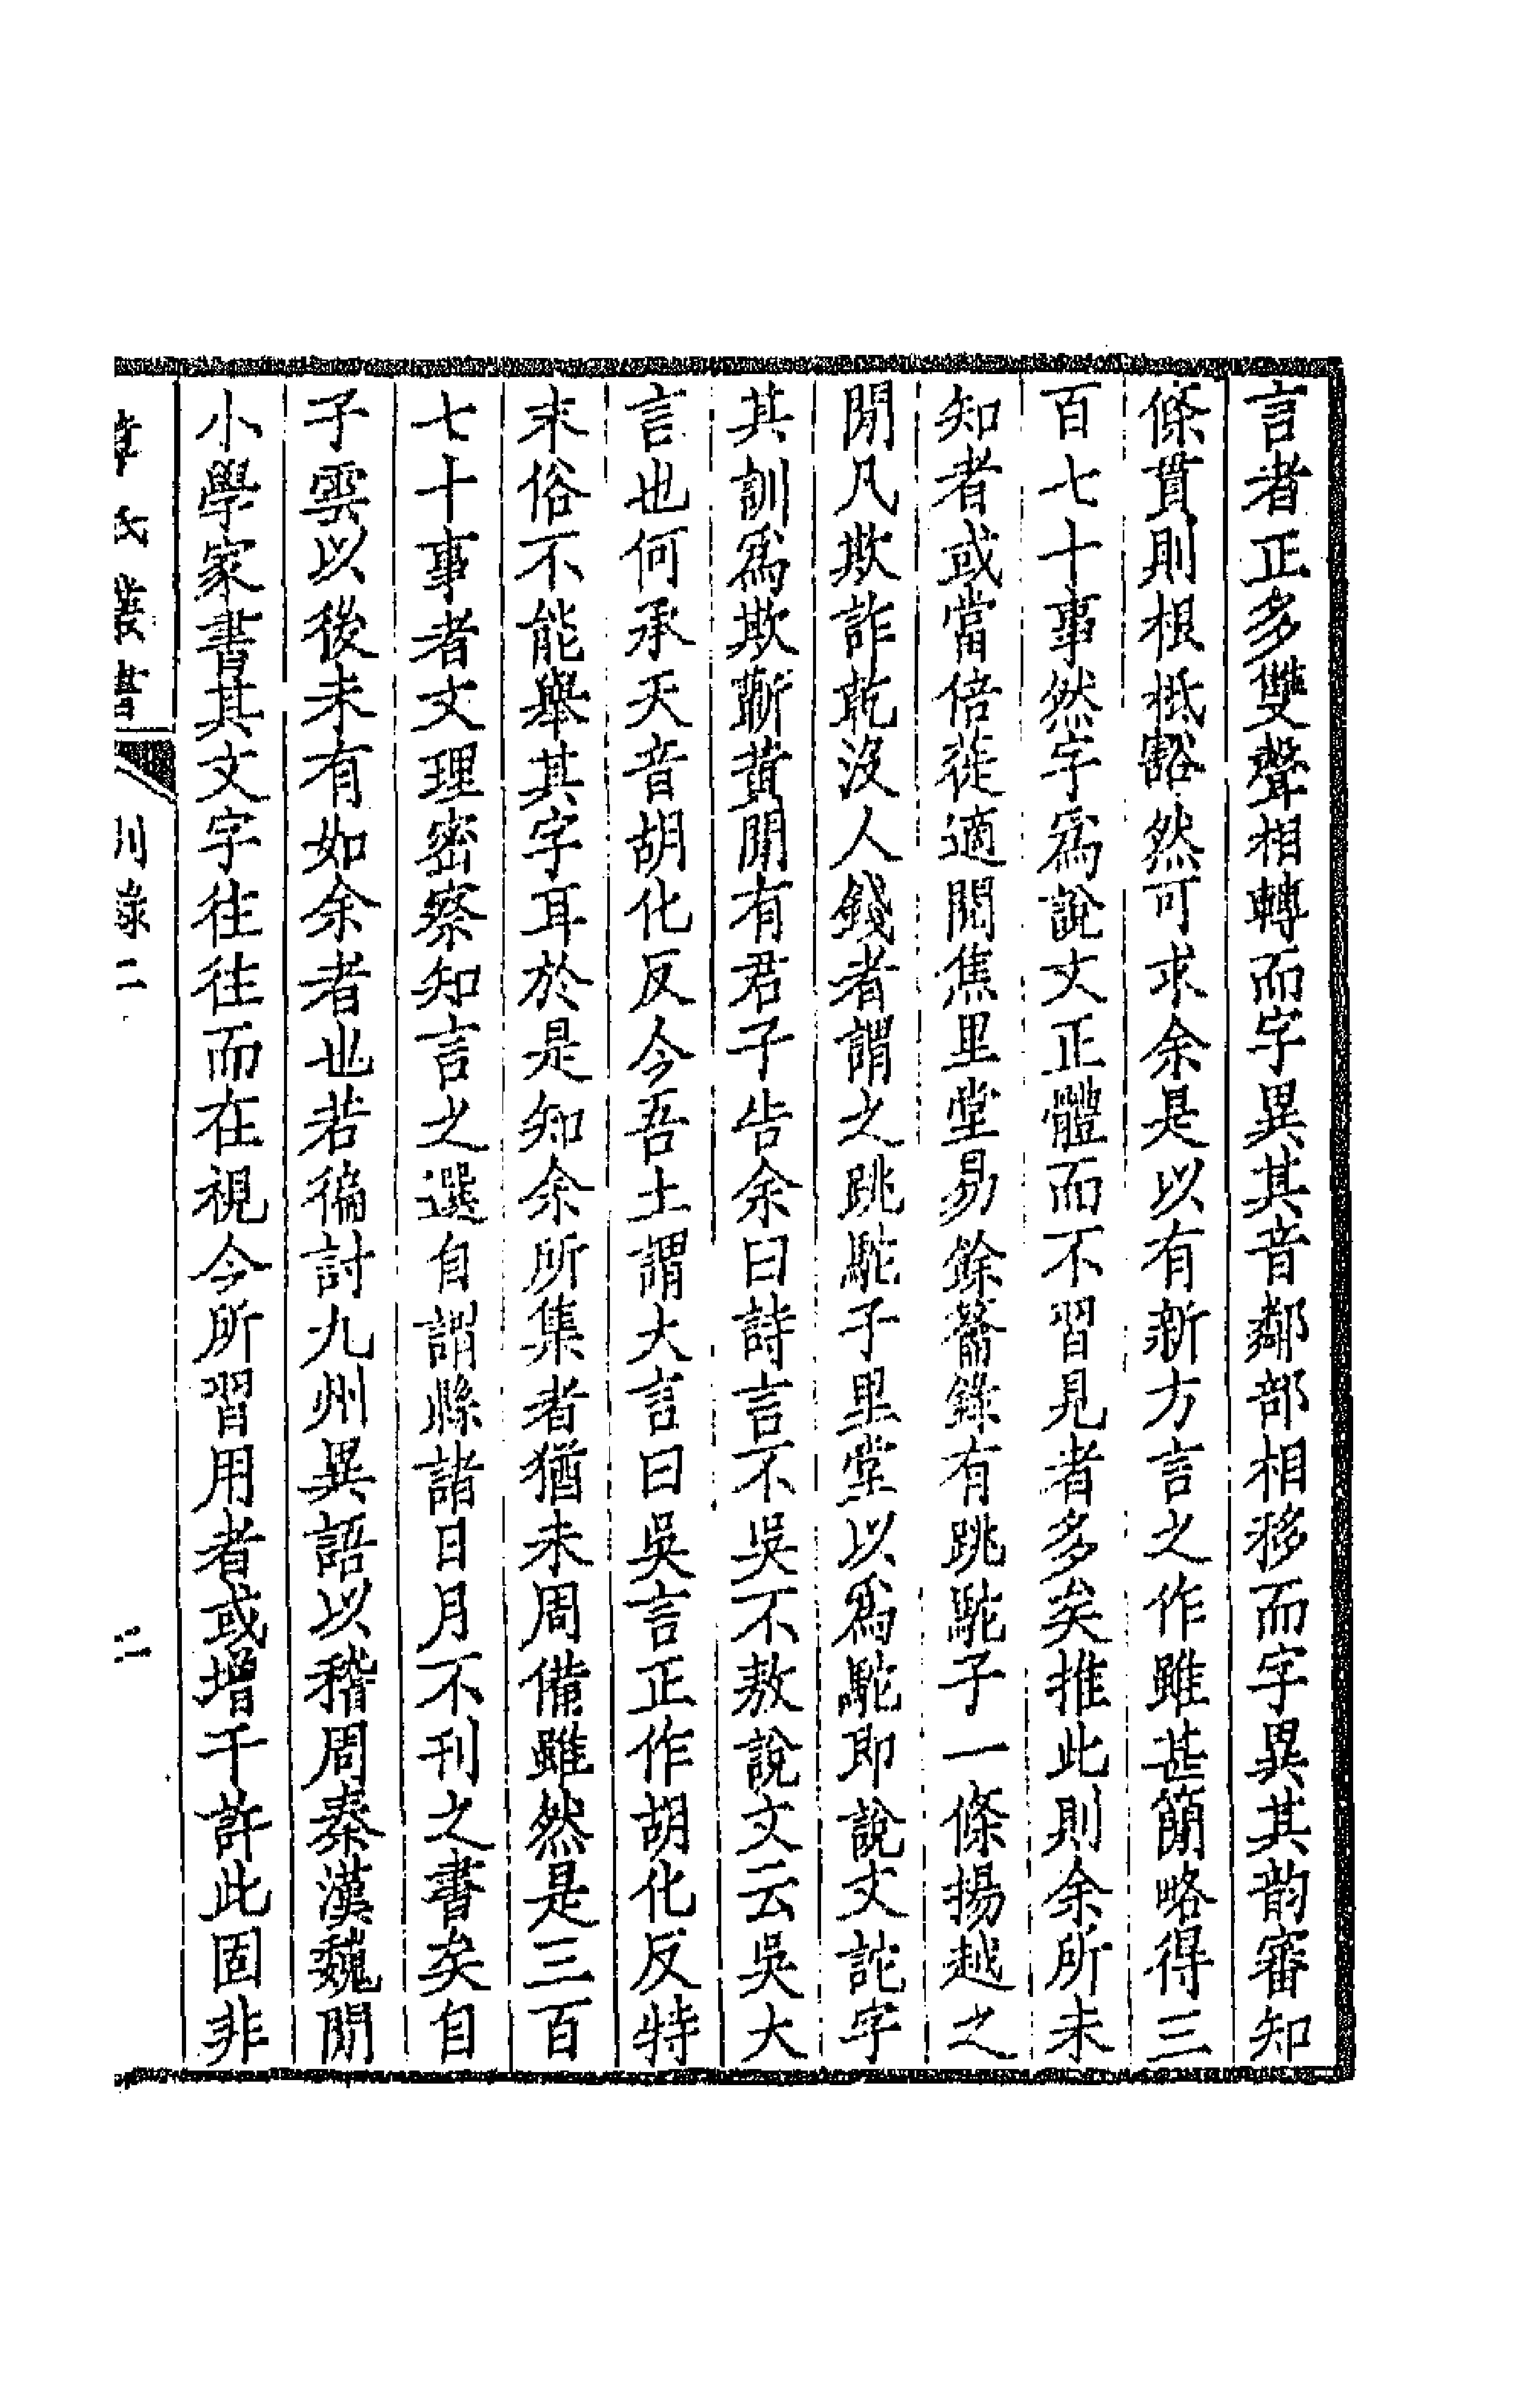 言者正多雙聲相轉而字異其音鄰部相移而字異其韵審知
條貫則根柢豁然可求余是以有新方言之作雖甚簡略得三
百七十事然字爲說文正體而不習見者多矣推此則余所未
知者或當倍蓰適閱焦里堂易餘籥錄有跳駝子一條揚越之
閒凡欺詐乾沒人錢者謂之跳駝子里堂以爲駝即說文詑字
其訓爲欺蘄黄閒有君子告余曰詩言不吳不敖說文云吳大
言也何承天音胡化反今吾土謂大言曰吳言正作胡化反特
末俗不能舉其字耳於是知余所集者猶未周備雖然是三百
七十事者文理密察知言之選自謂縣諸日月不刊之書矣自
子雲以後未有如余者也若徧討九州異語以稽周秦漢魏閒
小學家書其文字往往而在視今所習用者或增千許此固非
章氏叢書 別錄二 二